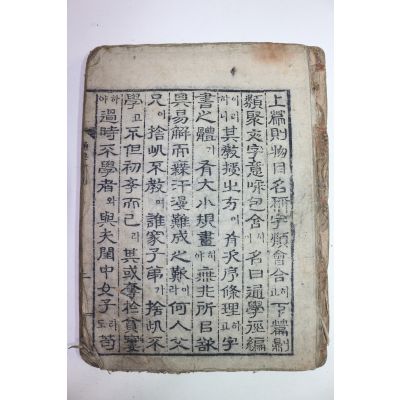 上篇則物目名稱字類會合하고下篇則
類聚文字意味包含하시名曰通學徑編
이라하니其敎授之方이有次序條理하고字
書之體가有大小規畫하야無非所以欲
其易解而無汗漫難成之歎이라何人父
兄이捨此不敎며誰家子弟가捨此不
學고不但初學而已라其或奪於貧窶
하야過時不學者와與夫閨中女子라도苟